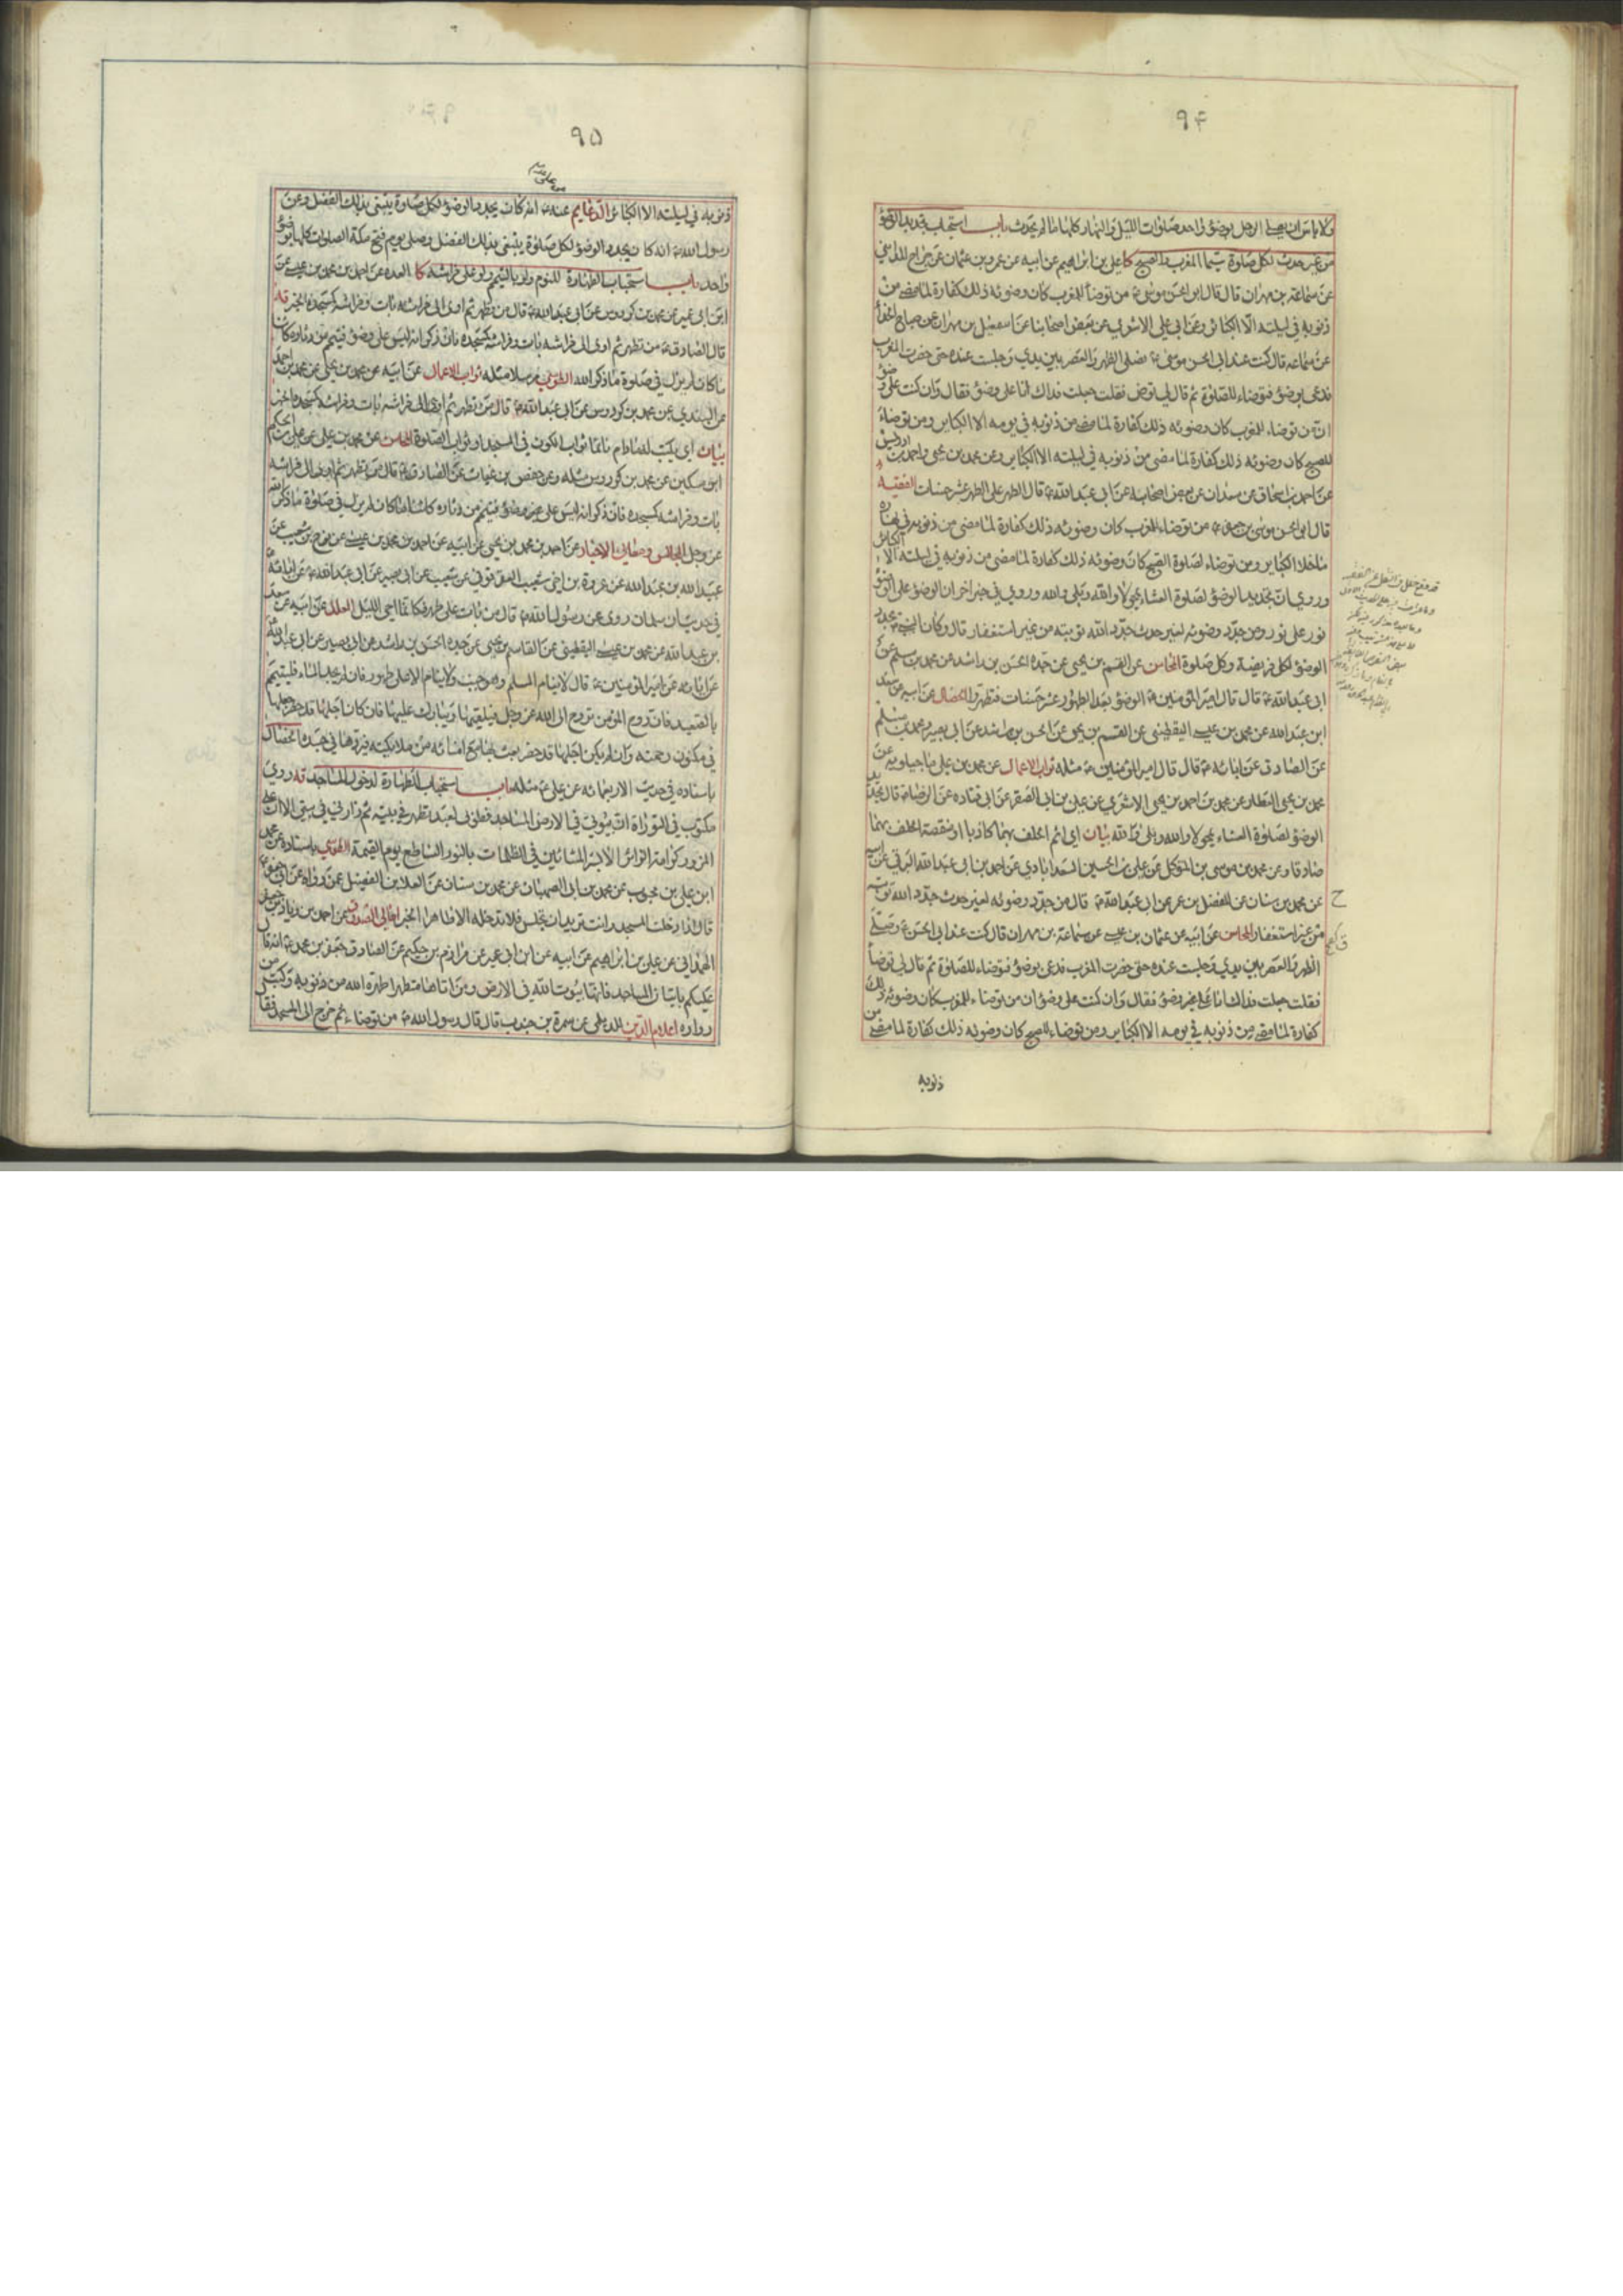 ٩۴
ولا باس ان يصلي الرجل بوضوء واحد صلوات الليل والنهار كلها ما لم يحدث باب استحباب تجديد الوضوء
من غير حدث لكل صلوة سيما المغرب والصبح كا علي بن ابراهيم عن ابيه عن عمرو بن عثمان عن جراح المدايني
عن سماعة بن مهران قال قال ابو الحسن موسى ع من توضأ للمغرب كان وضوئه ذلك كفارة لما مضى من
ذنوبه في ليلته الا الكبائر وعن ابي علي الاشعري عن بعض اصحابنا عن اسمعيل بن مهران عن صباح الحذاء
عن سماعه قال كنت عند ابي الحسن موسى ع فصلى الظهر والعصر بين يدي وجلست عنده حتى حضرت المغرب
فدعى بوضوء فتوضاء للصلوة ثم قال لي توض فقلت جعلت فداك انا على وضوء فقال وان كنت على وضوء
ان من توضاء للمغرب كان وضوئه ذلك كفارة لما مضى من ذنوبه في يومه الا الكباير ومن توضاء
للصبح كان وضوئه ذلك كفارة لما مضى من ذنوبه في ليلته الا الكباير وعن محمد بن يحيى واحمد بن ادريس
عن احمد بن اسحاق عن سعدان عن بعض اصحابه عن ابي عبد الله ع قال الطهر على الطهر عشر حسنات الفقيه
قال ابو الحسن موسى بن جعفر ع من توضاء للمغرب كان وضوئه ذلك كفارة لما مضى من ذنوبه في نهاره
ما خلا الكباير ومن توضاء لصلوة الصبح كان وضوئه ذلك كفارة لما مضى من ذنوبه في ليلته الا الكبائر
وروي ان تجديد الوضوء لصلوة العشاء يمحو لا والله وبلى والله وروي في خبر اخر ان الوضوء على الوضوء
نور على نور ومن جدد وضوئه لغير حدث جدد الله توبته من غير استغفار قال وكان النبي ص يجدد
الوضوء لكل فريضة وكل صلوة المحاسن عن القسم بن يحيى عن جده الحسن بن راشد عن محمد بن مسلم عن
ابي عبد الله ع قال قال امير المؤمنين ع الوضوء بعد الطهور عشر حسنات فتطهروا الخصال عن ابيه عن سعد
ابن عبد الله عن محمد بن عيسى اليقطيني عن القسم بن يحيى عن الحسن بن راشد عن ابي بصير ومحمد بن مسلم
عن الصادق عن ابائه ع قال قال امير المؤمنين ع مثله ثواب الاعمال عن محمد بن علي ماجيلويه عن
محمد بن يحيى العطار عن محمد بن احمد بن يحيى الاشعري عن علي بن ابي الصقر عن ابي قتاده عن الرضا ع قال تجديد
الوضوء لصلوة العشاء يمحو لا والله وبلى والله بيان اي اثم الحلف بهما كاذبا او منقصة الحلف بهما
صادقا وعن محمد بن موسى بن المتوكل عن علي بن الحسين السعدابادي عن احمد بن ابي عبد الله البرقي عن ابيه
عن محمد بن سنان عن المفضل بن عمر عن ابي عبد الله ع قال من جدد وضوئه لغير حدث جدد الله توبته
من غير استغفار المحاسن عن ابيه عن عثمان بن عيسى عن سماعة بن مهران قال كنت عند ابي الحسن ع فصلى
الظهر والعصر بين يدي وجلست عنده حتى حضرت المغرب فدعى بوضوء فتوضاء للصلوة ثم قال لي توضأ
فقلت جعلت فداك انا على وضوء فقال وان كنت على وضوء ان من توضاء للمغرب كان وضوئه ذلك
كفارة لما مضى من ذنوبه في يومه الا الكباير ومن توضاء للصبح كان وضوئه ذلك كفارة لما مضى من
ذنوبه
٩۵
ذنوبه في ليلته الا الكبائر الدعايم عنه ع انه كان يجدد الوضوء لكل صلوة يبتغي بذلك الفضل وعن
رسول الله ص انه كان يجدد الوضوء لكل صلوة يبتغي بذلك الفضل وصلى يوم فتح مكة الصلوات كلها بوضوء
واحد باب استحباب الطهارة للنوم ولو بالتيمم ولو على فراشه كا العده عن احمد بن محمد بن عيسى عن
ابن ابي عمير عن محمد بن كردوس عن ابي عبد الله ع قال من تطهر ثم اوى الى فراشه بات وفراشه كمسجده الخبر قه
قال الصادق ع من تطهر ثم اوى الى فراشه بات وفراشه كمسجده فان ذكر انه ليس على وضوء فتيمم من دثاره كائنا
ما كان لم يزل في صلوة ما ذكر الله الطوسي مرسلا مثله ثواب الاعمال عن ابيه عن محمد بن يحيى عن محمد بن احمد
عن السندي عن محمد بن كردوس عن ابي عبد الله ع قال من تطهر ثم اوى الى فراشه بات وفراشه كمسجده الخبر
بيان اي يكتب له ما دام نائما ثواب الكون في المسجد او ثواب الصلوة المحاسن عن محمد بن علي عن علي بن الحكم
ابن مسكين عن محمد بن كردوس مثله وعن حفص بن غياث عن الصادق ع قال من تطهر ثم اوى الى فراشه
بات وفراشه كمسجده فان ذكر انه ليس على غير وضوء فتيمم من دثاره كائنا ما كان لم يزل في صلوة ما ذكر الله
عز وجل المجالس ومعاني الاخبار عن احمد بن محمد بن يحيى عن ابيه عن احمد بن محمد بن عيسى عن نوح بن شعيب عن
عبيد الله بن عبد الله عن عروة بن اخي شعيب العقرقوفي عن شعيب عن ابي بصير عن ابي عبد الله ع عن ابائه
في حديث ان سلمان روى عن رسول الله ص قال من بات على طهر فكانما احيى الليل العلل عن ابيه عن سعد
بن عبد الله عن محمد بن عيسى اليقطيني عن القاسم بن يحيى عن جده الحسن بن راشد عن ابي بصير عن ابي عبد الله
عن ابائه عن امير المؤمنين ع قال لا ينام المسلم وهو جنب ولا ينام الا على طهور فان لم يجد الماء فليتيمم
بالصعيد فان روح المؤمن تروح الى الله عز وجل فيلقيها ويبارك عليها فان كان اجلها قد حضر جعلها
في مكنون رحمته وان لم يكن اجلها قد حضر بعث بها مع امنائه من ملائكته فيردها في جسده الخصال
باسناده في حديث الاربعمائه عن علي ع مثله باب استحباب الطهارة لدخول المساجد قه روي
مكتوب في التوراة ان بيوتي في الارض المساجد فطوبى لعبد تطهر في بيته ثم زارني في بيتي الا ان على
المزور كرامة الزائر الا بشر المشائين في الظلمات بالنور الساطع يوم القيمة الطوسي باسناده عن محمد
ابن علي بن محبوب عن محمد بن ابي الصهبان عن محمد بن سنان عن العلا بن الفضيل عمن رواه عن ابي جعفر ع
قال اذا دخلت المسجد وانت تريد ان تجلس فلا تدخله الا طاهرا الخبر امالي الصدوق عن احمد بن زياد بن جعفر
الهمداني عن علي بن ابراهيم عن ابيه عن ابن ابي عمير عن مرازم بن حكيم عن الصادق جعفر بن محمد ع انه قال
عليكم باتيان المساجد فانها بيوت الله في الارض ومن اتاها متطهرا طهره الله من ذنوبه وكتب من
زواره اعلام الدين للديلمي عن سمرة بن جندب قال قال رسول الله ص من توضاء ثم خرج الى المسجد فقال